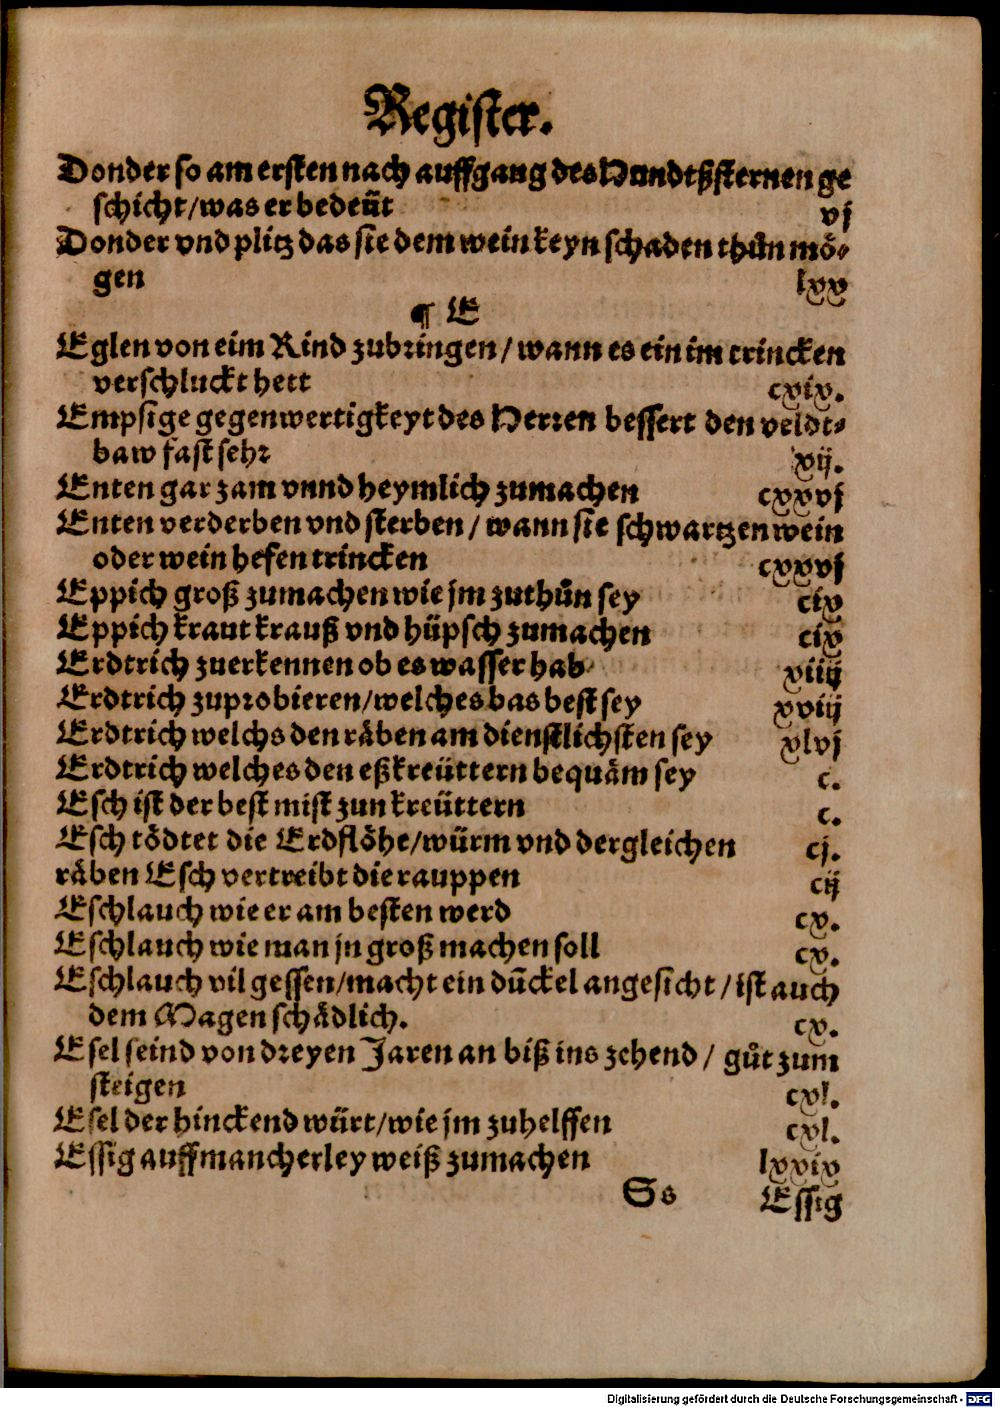 Register.
Donder so am ersten nach auffgang des Hundtßsternen ge
schicht/was er bedeüt vj
Donder vnd plitz das sie dem wein keyn schaden thůn mö-
gen lxx
¶ E
Eglen von eim Rind zubringen/ wann es ein im trincken
verschluckt hett cxix.
Empsige gegenwertigkeyt des Herren bessert den veldt-
baw fast sehr xij.
Enten gar zam vnnd heymlich zumachen cxxvj
Enten verderben vnd sterben/ wann sie schwartzen wein
oder wein hefen trincken cxxvj
Eppich groß zumachen wie jm zuthůn sey cix
Eppich kraut krauß vnd hüpsch zumachen cix
Erdtrich zuerkennen ob es wasser hab xiiij
Erdtrich zuprobieren/welches bas best sey xviij
Erdtrich welchs den räben am dienstlichsten sey xlvj
Erdtrich welches den eßkreüttern bequäm sey c.
Esch ist der best mist zun kreüttern c.
Esch tödtet die Erdflöhe/würm vnd dergleichen cj.
räben Esch vertreibt die rauppen cij
Eschlauch wie er am besten werd cx.
Eschlauch wie man jn groß machen soll cx.
Eschlauch vil gessen/macht ein duckel angesicht/ist auch
dem Magen schädlich. cx.
Esel seind von dreyen Jaren an biß ins zehend/ gůt zum
steigen cxl.
Esel der hinckend würt/wie jm zuhelffen cxl.
Essig auff mancherley weiß zumachen lxxix
Ss Essig
Digitalisierung gefördert durch die Deutsche Forschungsgemeinschaft - DFG